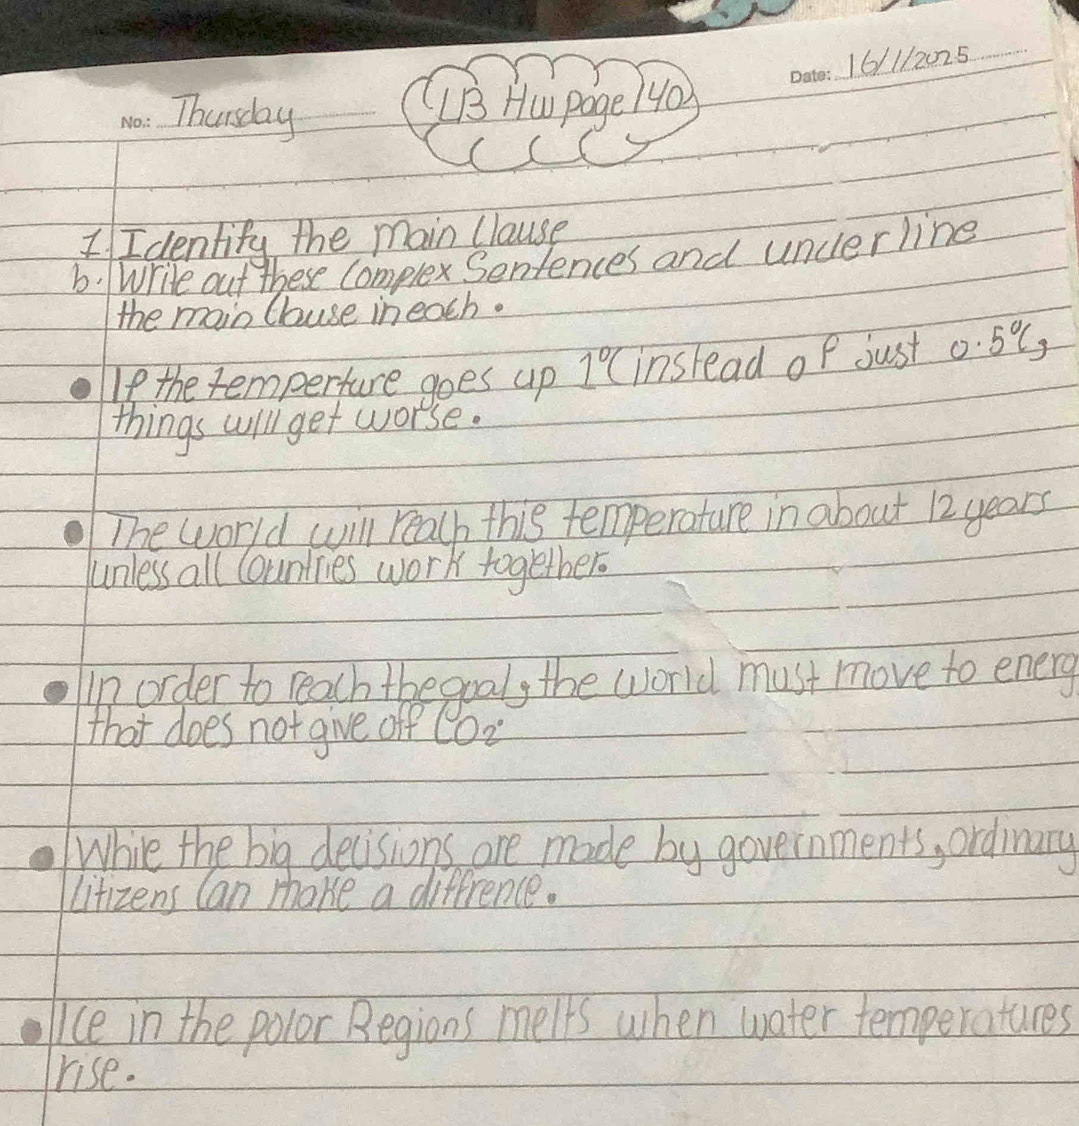 No.: Thursday
LB HW page 140
Date: 16/1/2025
1 Identify the main Clause
b. Write out these Complex Sentences and underline
the main Clause in each.
If the temperture goes up 1°C instead of just 0.5°C,
things will get worse.
The world will reach this temperature in about 12 years
unless all Countries work together.
In order to reach the goal, the world must move to energ
that does not give off CO₂.
While the big decisions are made by governments, ordinary
Citizens Can make a diffrence.
Ice in the polor Regions melts when water temperatures
rise.